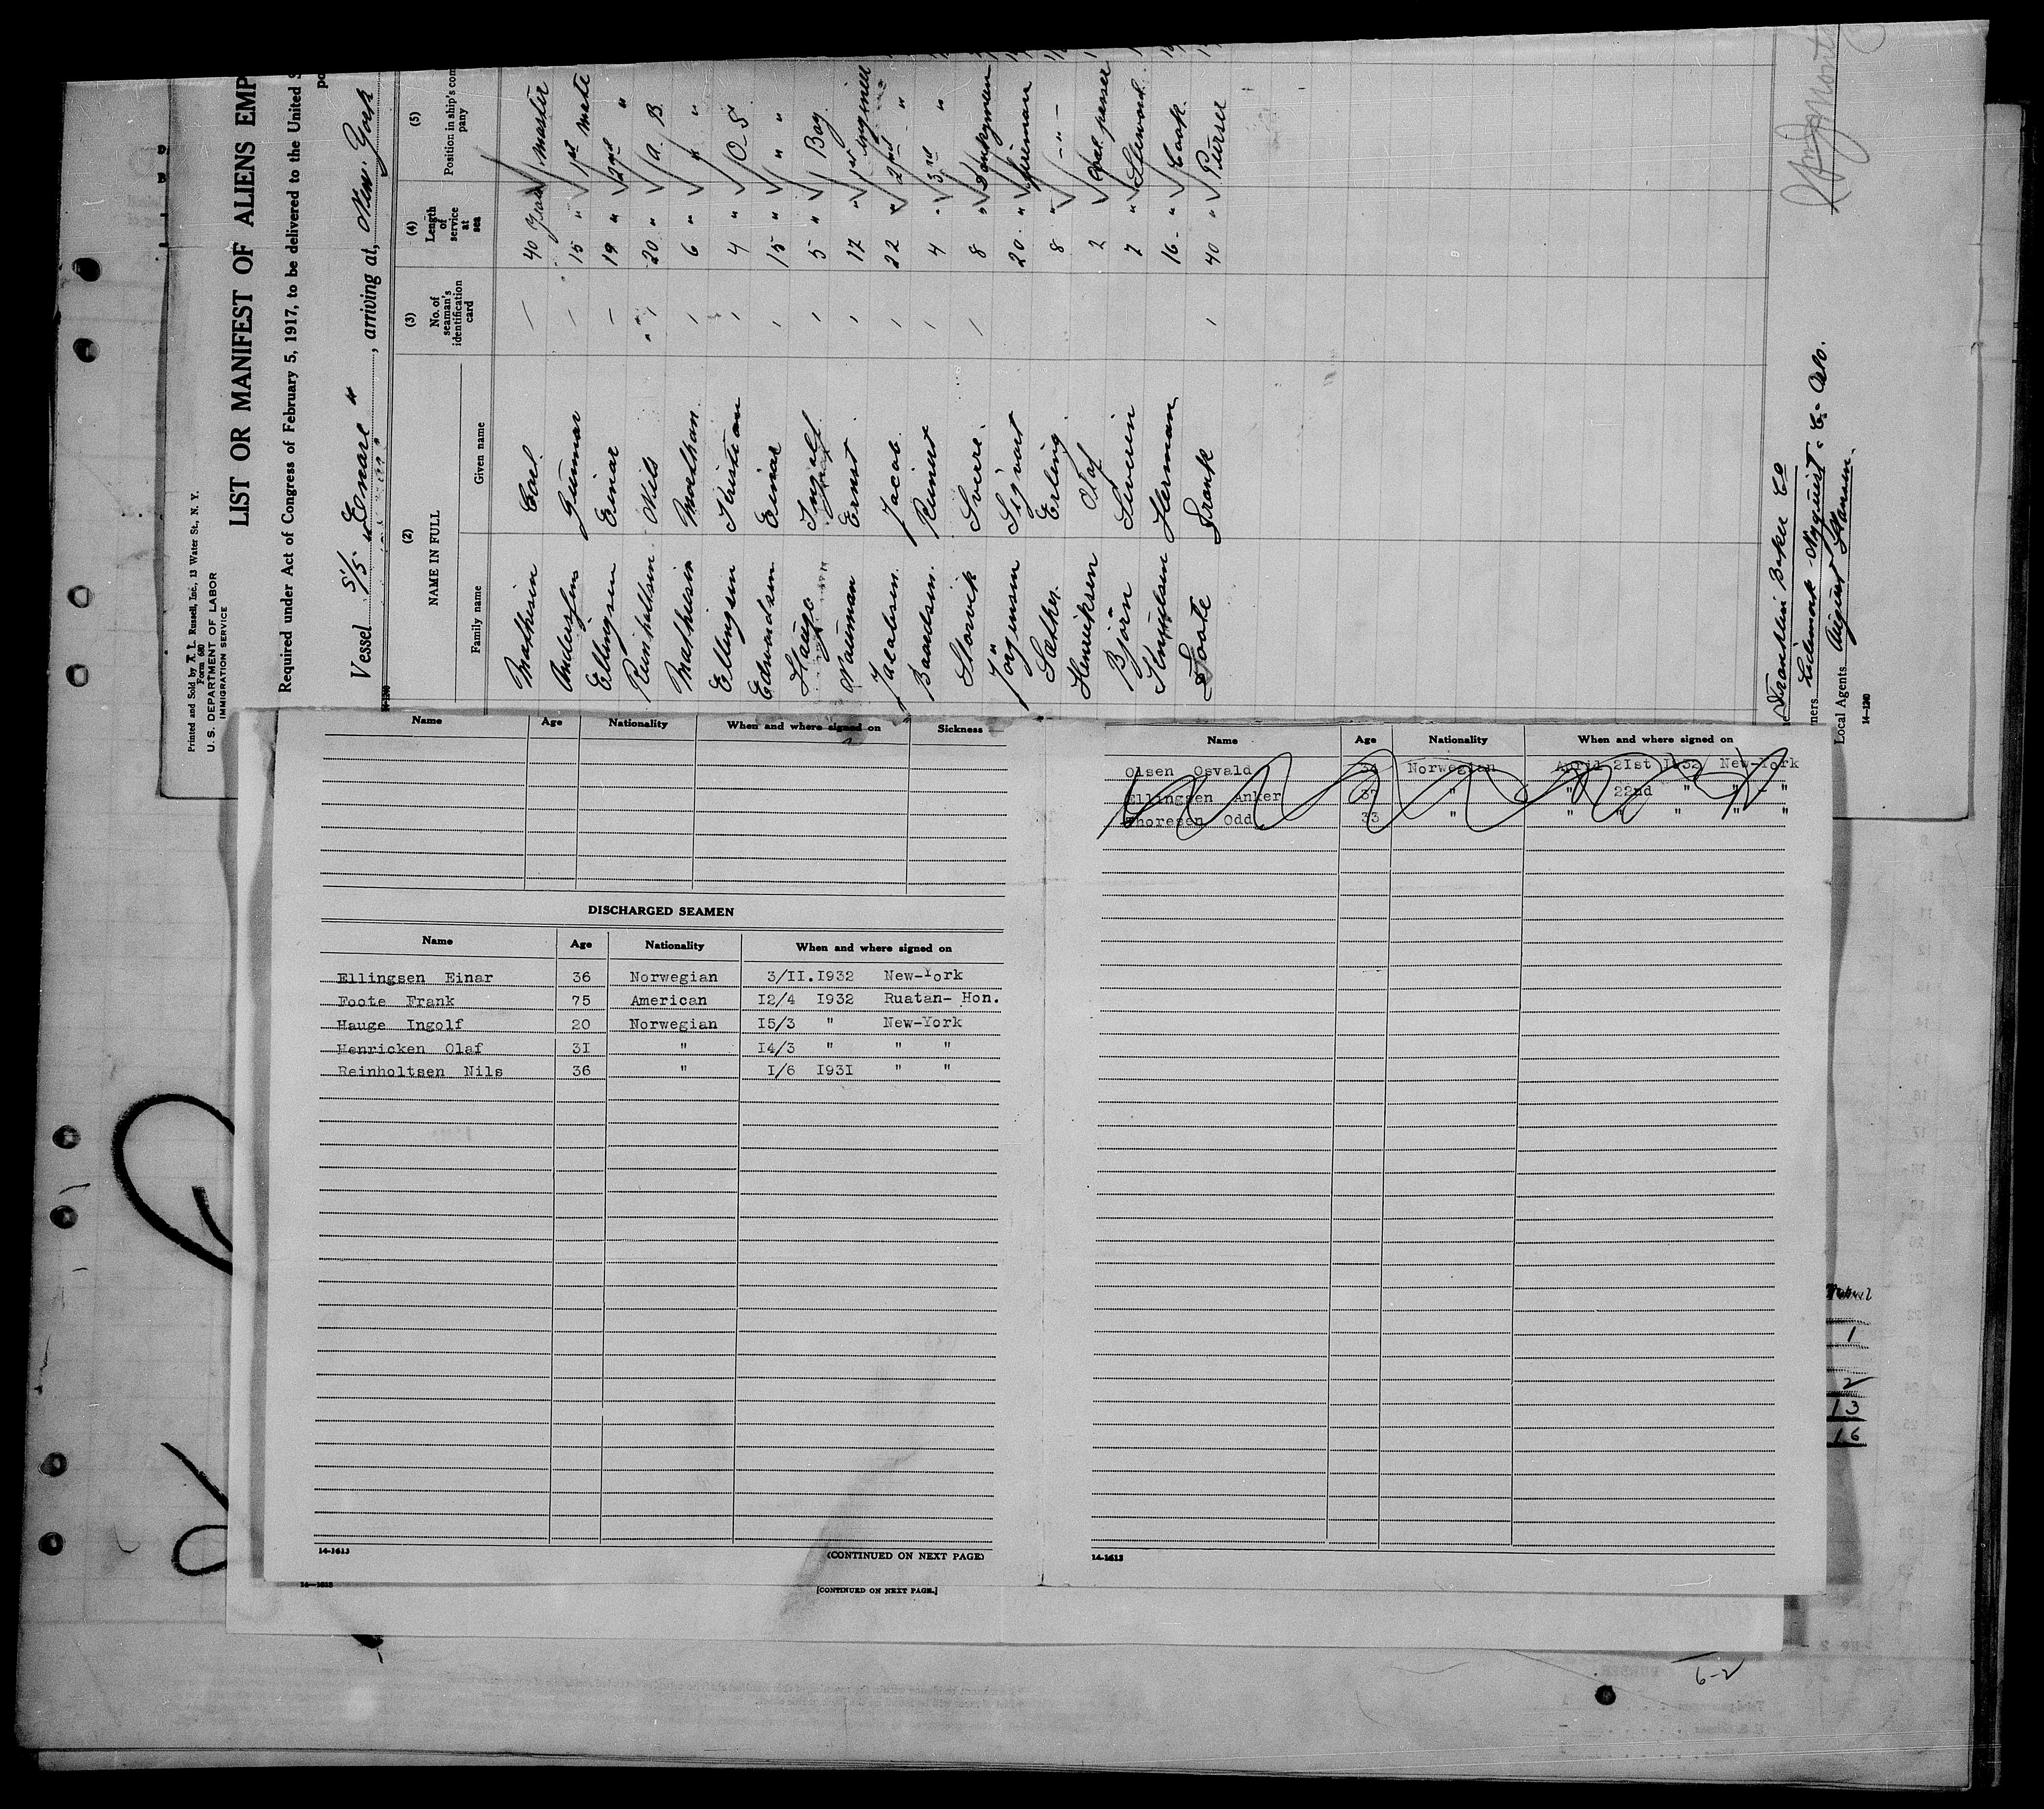 Printed and Sold by A. L. Russell, Inc., 13 Water St., N. Y.
Form 680
U. S. DEPARTMENT OF LABOR
IMMIGRATION SERVICE
LIST OR MANIFEST OF ALIENS EMP
Required under Act of Congress of February 5, 1917, to be delivered to the United S
Vessel S/S "Enare", arriving at, New York
14-1240
(2) (3) (4) (5)
NAME IN FULL No. of seaman's identification card Length of service at sea Position in ship's com pany
Family name Given name
Mathisen Carl — 40 years master
Andersen Gunnar — 15 " 1st mate
Ellingsen Einar — 19 " 2nd "
Reinholtsen Nils 20 " A. B.
Mathisen 6 " " "
Ellingsen Kristian 4 " O S
Edwardsen Einar 15 " " "
Hauge Ingolf 5 " Boy
Nauman Ernst 17 " 1st engineer
Jacobsen Jacob 22 " 2nd "
Baardsen Reinert 4 " 3rd "
Storvik Sverre 8 " Donkeyman
Jörgensen Sigvart 20 " fireman
Sæther Erling 8 " - " -
Henriksen Olaf 2
Björn Severin 7 " Steward
Knudsen Herman 16 - " Cook
Foote Frank 40 " Purser
Franklin Baker Co
ners
Local Agents August
14-1240
Name Age Nationality When and where signed on Sickness
DISCHARGED SEAMEN
Name Age Nationality When and where signed on
Ellingsen Einar 36 Norwegian 3/II.I932 New-York
Foote Frank 75 American I2/4 I932 Ruatan- Hon.
Hauge Ingolf 20 Norwegian I5/3 " New-York
Henricken Olaf 3I " I4/3 " " "
Reinholtsen Nils 36 " I/6 I93I " "
14-1613
(CONTINUED ON NEXT PAGE)
14-1613
[CONTINUED ON NEXT PAGE.]
Name Age Nationality When and where signed on
Olsen Osvald 34 Norwegian April 2Ist I932 New-York
Ellingsen Anker 37 " " 22nd " " - "
Thoresen Odd 33 " " " " " "
14-1613
1
2
13
16
6-2